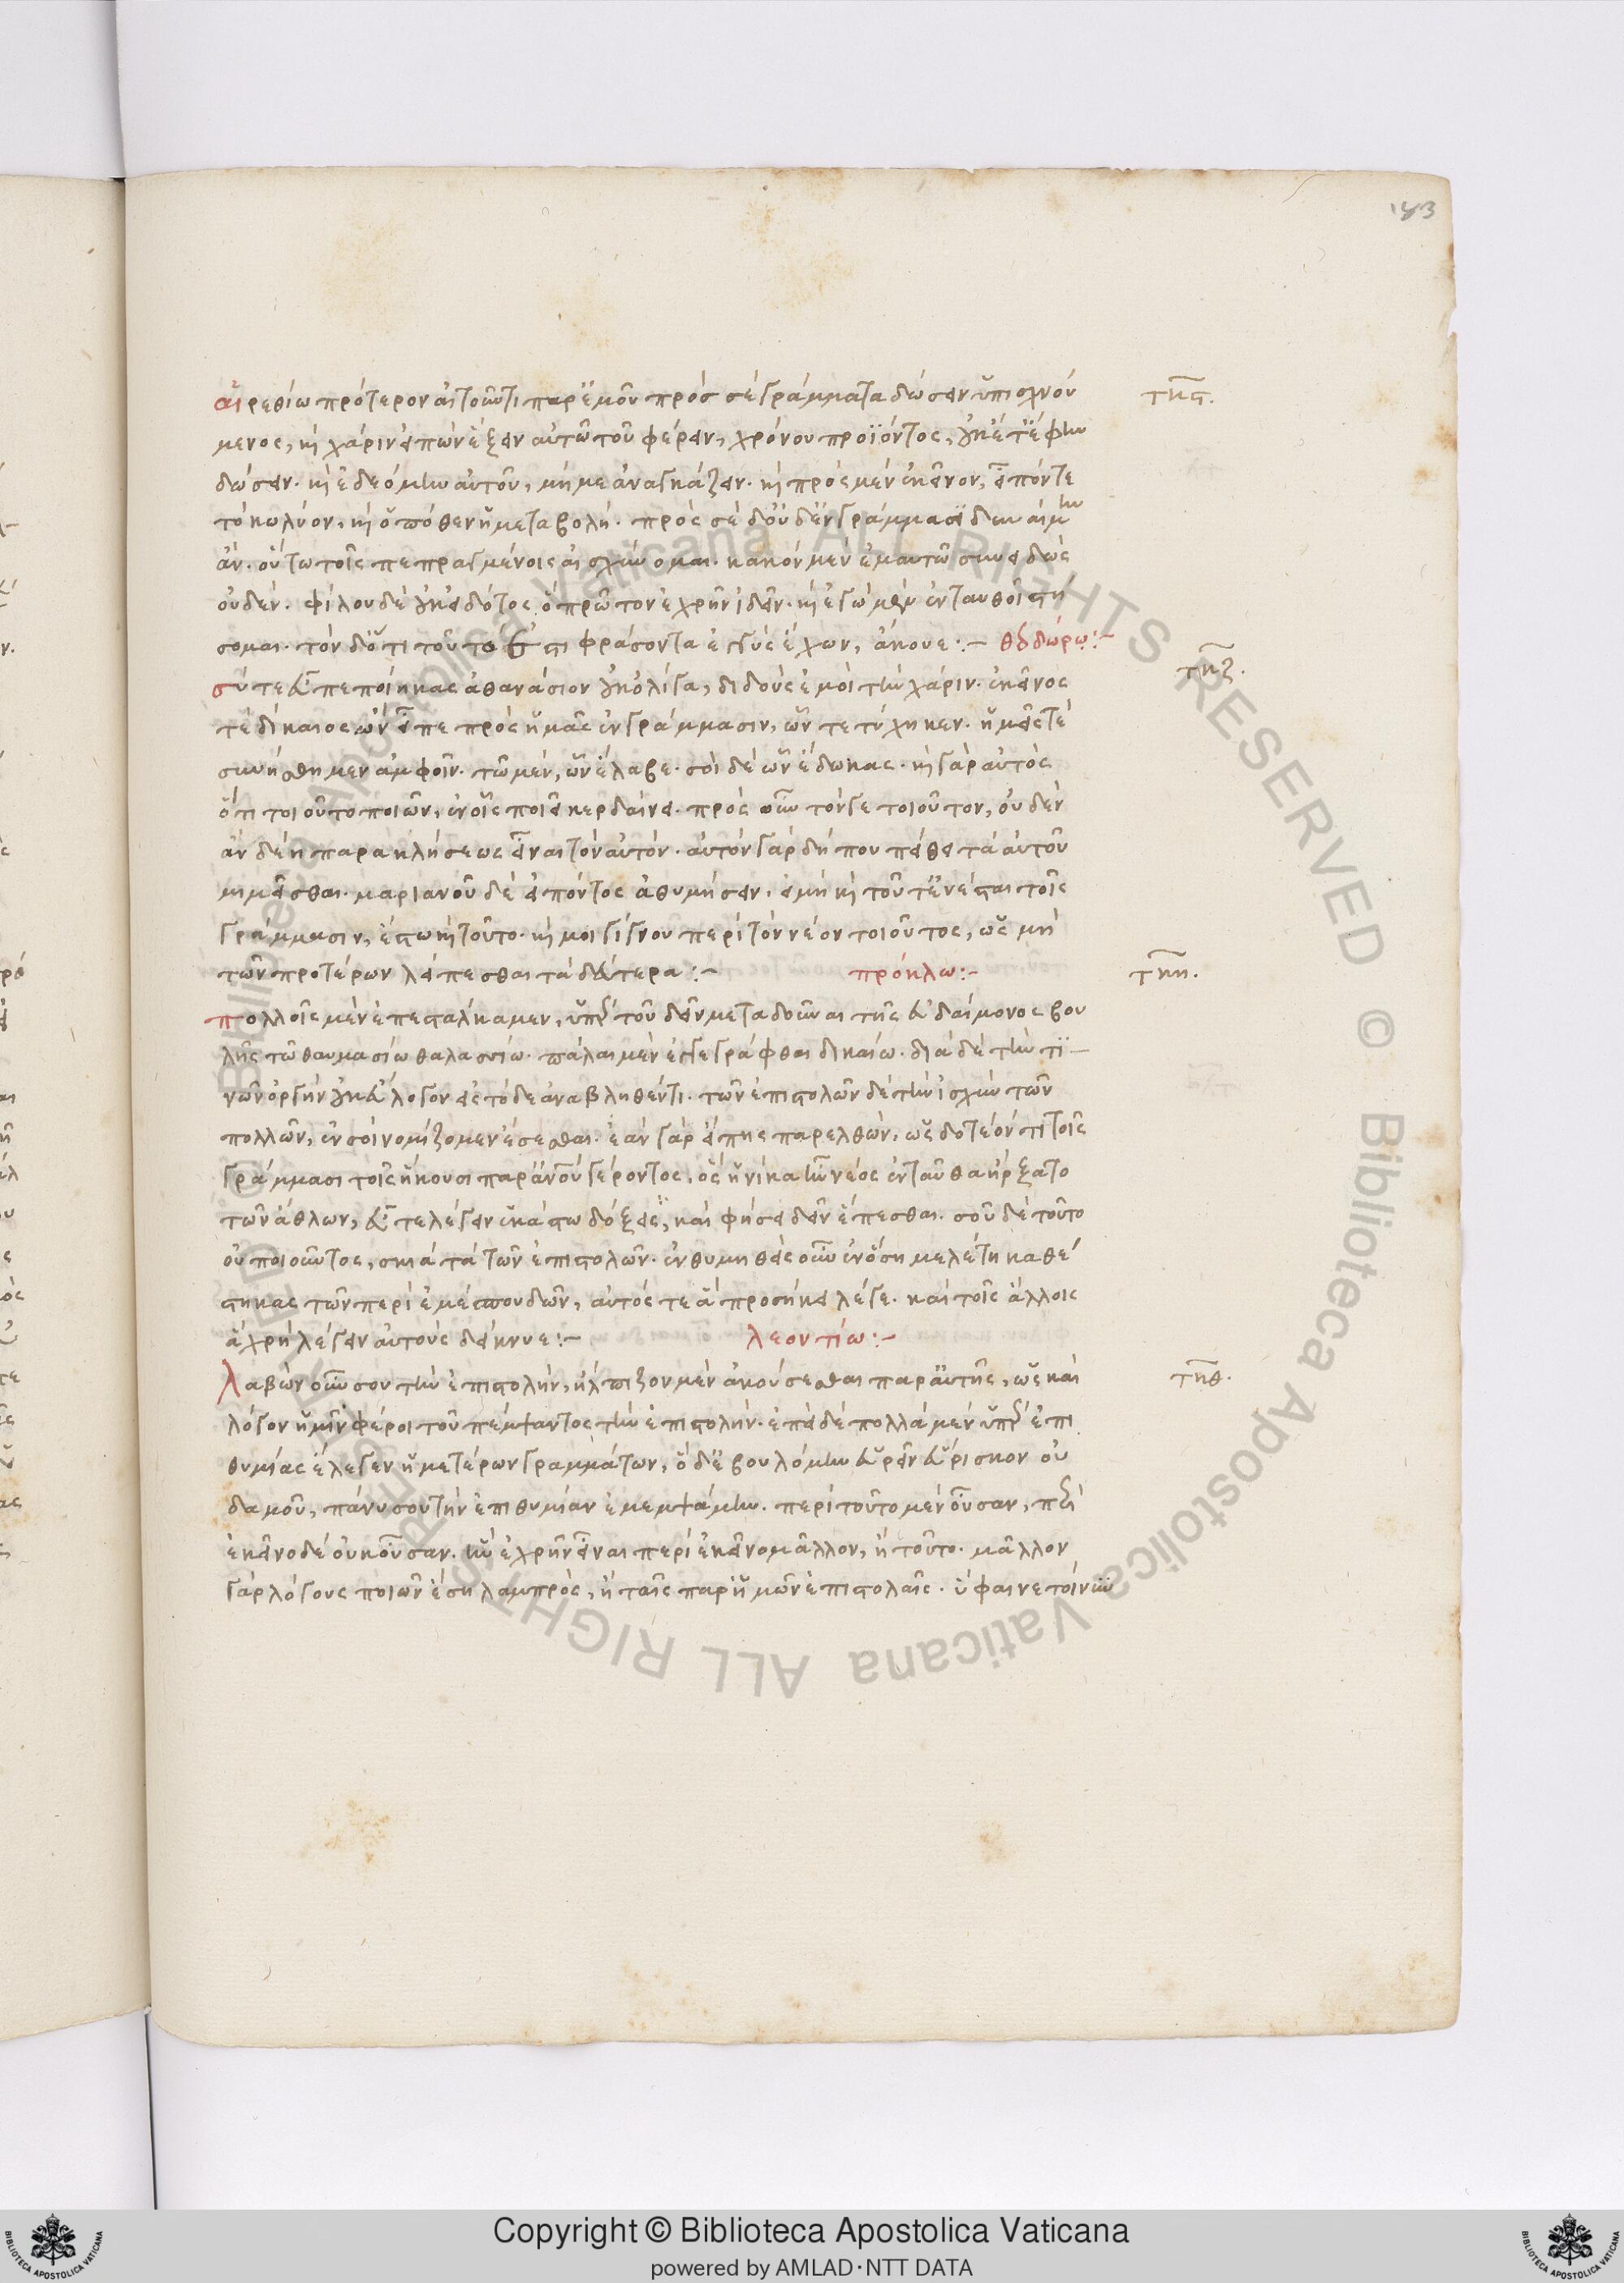 183
αἱρεθίω πρότερον αἰτοῦντι παρ' ἐμοῦ πρὸς σὲ γράμματα δώσειν ὑπισχνού
τκϛ.
μενος, καὶ χάριν εἰπὼν ἕξειν αὐτῷ τοῦ φέρειν, χρόνου προϊόντος, οὐκέτ' ἔφην
δώσειν. καὶ ἐδεόμην αὐτοῦ, μή με ἀναγκάζειν. καὶ πρὸς μὲν ἐκεῖνον, εἶπόν τε
τὸ κωλύον, καὶ ὁπόθεν ἡ μεταβολή. πρὸς σὲ δ' οὐδ' ἐν γράμμασι δυναίμην
ἄν. οὕτω τοῖς πεπραγμένοις αἰσχύνομαι. κακὸν μὲν ἐμαυτῷ συνειδὼς
οὐδέν. φίλου δὲ οὐκ εἰδότος ὃ πρῶτον ἐχρῆν ἰδεῖν. καὶ ἐγὼ μὲν ἐνταυθοῖ στή
σομαι. τὸν δ' ὅ τι τοῦτό ἐστι φράσοντα ἐγγὺς ἔχων, ἄκουε:– θεοδώρῳ:–
τκζ.
σύ τε εὖ πεποίηκας ἀθανάσιον οὐκ ὀλίγα, διδοὺς ἐμοὶ τὴν χάριν. ἐκεῖνός
τε δίκαιος ὢν εἶπε πρὸς ἡμᾶς ἐν γράμμασιν, ὧν τετύχηκεν. ἡμεῖς τε
συνήσθημεν ἀμφοῖν. τῷ μὲν, ὧν ἔλαβε. σοὶ δὲ ὧν ἔδωκας. καὶ γὰρ αὐτὸς
ὅ τι τοιοῦτο ποιῶν, ἐν οἷς ποιεῖ κερδαίνει. πρὸς οὖν τόν γε τοιοῦτον, οὐδὲν
ἂν δέῃ παρακλήσεως εἶναι τὸν αὐτόν. αὐτὸν γὰρ δήπου πείθει τὰ αὑτοῦ
μιμεῖσθαι. μαριανοῦ δὲ εἰπόντος ἀθυμήσειν, εἰ μὴ καὶ τοῦτ' ἐνέσται τοῖς
γράμμασιν, ἔστω καὶ τοῦτο. καί μοι γίγνου περὶ τὸν νέον τοιοῦτος, ὡς μὴ
τῶν προτέρων λείπεσθαι τὰ δεύτερα:– πρόκλῳ:–
τκη.
πολλοῖς μὲν ἐπεσταλήκαμεν, ὑπὲρ τοῦ δεῖν μεταδοῦναι τῆς εὐδαίμονος βου
λῆς τῷ θαυμασίῳ θαλασσίῳ. πάλαι μὲν ἐγγεγράφθαι δικαίῳ. διὰ δὲ τὴν τι–
νῶν ὀργὴν οὐκ εὔλογον εἰς τόδε ἀναβληθέντι. τῶν ἐπιστολῶν δὲ τὴν ἰσχὺν τῶν
πολλῶν, ἐν σοὶ νομίζομεν ἔσεσθαι. ἐὰν γὰρ εἴπῃς παρελθών, ὡς δοτέον τι τοῖς
γράμμασι τοῖς ἥκουσι παρ' ἀνδρὸς γέροντος, ὃς ἡνίκα ἦν νέος ἐνταῦθα ἤρξατο
τῶν ἄθλων, εὖ τε λέγειν ἑκάστῳ δόξεις, καὶ φήσει δεῖν ἕπεσθαι. σοῦ δὲ τοῦτο
οὐ ποιοῦντος, σκιὰ τὰ τῶν ἐπιστολῶν. ἐνθυμηθεὶς οὖν ἐν ὅσῃ μελέτῃ καθέ
στηκας τῶν περὶ ἐμὲ σπουδῶν, αὐτός τε ἃ προσήκει λέγε. καὶ τοῖς ἄλλοις
ἃ χρὴ λέγειν αὐτοὺς δείκνυε:– λεοντίῳ:–
λαβὼν οὖν σου τὴν ἐπιστολήν, ἤλπιζον μὲν ἀκούσεσθαι παρ' αὐτῆς, ὡς καὶ
τκθ.
λόγον ἡμῖν φέροι τοῦ πέμψαντος τὴν ἐπιστολήν. ἐπεὶ δὲ πολλὰ μὲν ὑπὲρ ἐπι
θυμίας ἔλεγεν ἡμετέρων γραμμάτων, ὃ δ' ἐβουλόμην εὑρεῖν εὕρισκον οὐ
δαμοῦ, πάνυ σου τὴν ἐπιθυμίαν ἐμεμψάμην. περὶ τοῦτο μὲν οὖσαν, περὶ
ἐκεῖνο δὲ οὐκ οὖσαν. ἣν ἐχρῆν εἶναι περὶ ἐκεῖνο μᾶλλον, ἢ τοῦτο. μᾶλλον
γὰρ λόγους ποιῶν ἔσῃ λαμπρός, ἢ ταῖς παρ' ἡμῶν ἐπιστολαῖς. ὕφαινε τοίνυν